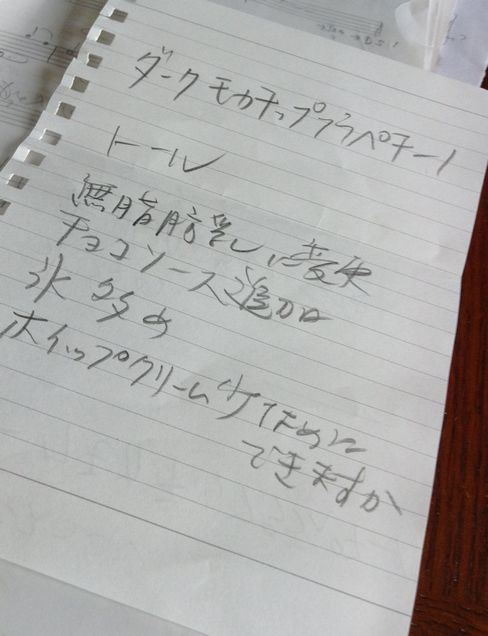 ダークモカチップフラペチーノ
トール
無脂肪乳に変更
チョコソース追加
氷多め
ホイップクリーム少なめに
できますか